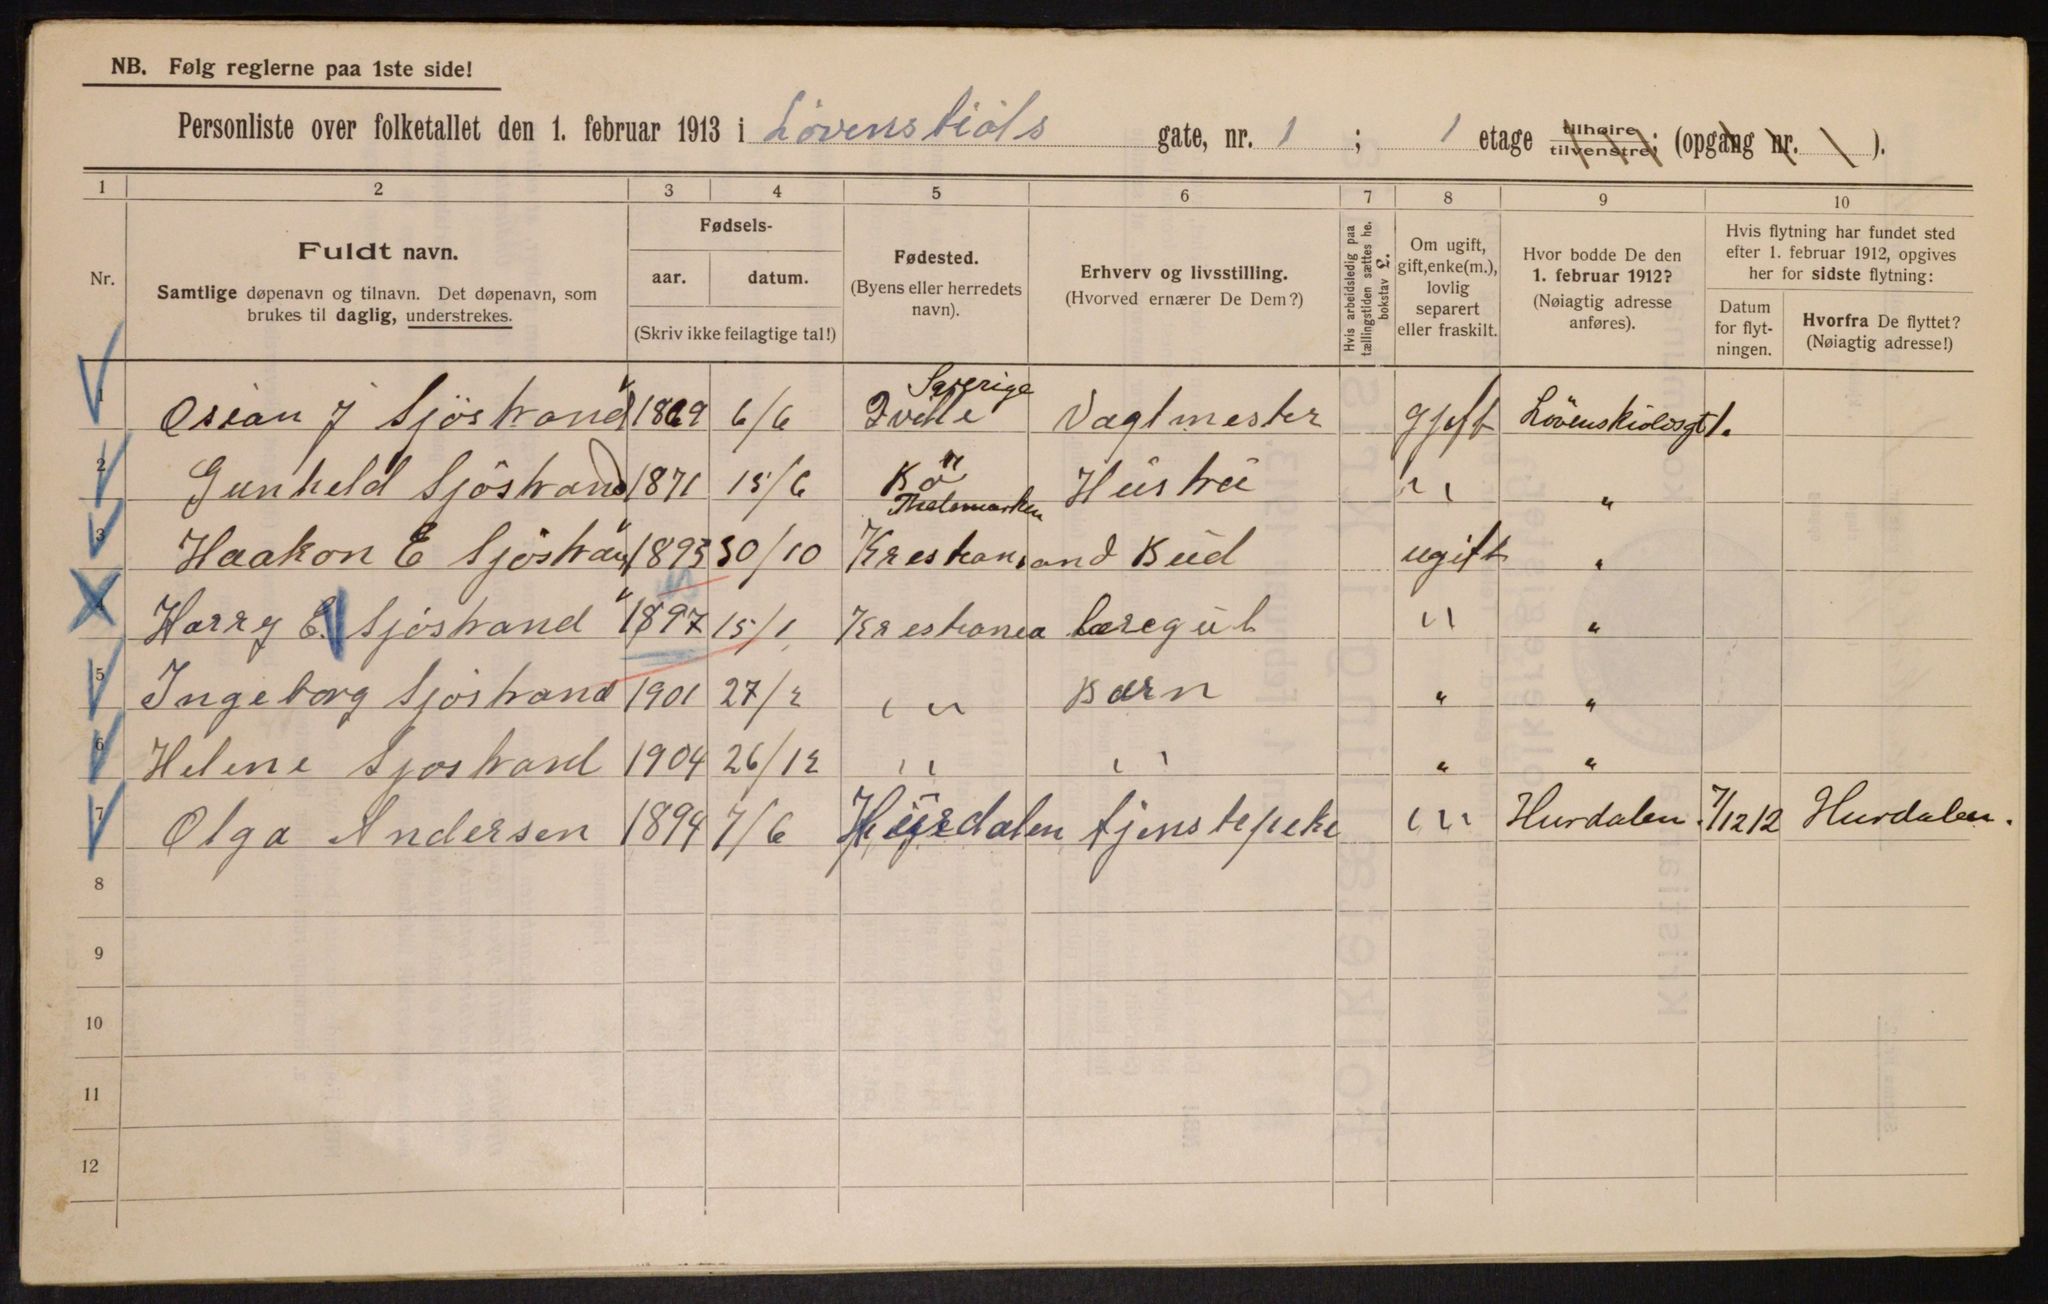 NB. Følg reglerne paa 1ste side!
Personliste over folketallet den 1. februar 1913 i Løvenskiols gate, nr. 1 ; 1 etage tilhøire tilvenstre; (opgang nr. ).
1 2 3 4 5 6 7 8 9 10
Nr.
Fuldt navn.
Samtlige døpenavn og tilnavn. Det døpenavn, som
brukes til daglig, understrekes.
Fødsels-
aar. datum.
(Skriv ikke feilagtige tal!)
Fødested.
(Byens eller herredets
navn).
Erhverv og livsstilling.
(Hvorved ernærer De Dem?)
Hvis arbeidsledig paa
tællingstiden sættes he.
bokstav L.
Om ugift,
gift, enke(m.),
lovlig
separert
eller fraskilt.
Hvor bodde De den
1. februar 1912?
(Nøiagtig adresse
anføres).
Hvis flytning har fundet sted
efter 1. februar 1912, opgives
her for sidste flytning:
Datum
for flyt-
ningen.
Hvorfra De flyttet?
(Nøiagtig adresse!)
1 J Sjöstrand 1869 6/6 Sverige Vagtmester gjft Lövenskiolsgt 1.
2 Gunheld Sjöstrand 1871 15/6 Bö Thelemarken Hustru " "
3 Haakon E Sjöstrand 1895 30/10 Krestiansand Bud ugift "
4 Harry E. Sjöstrand 1897 15/1 Krestiania læregut " "
5 Ingeborg Sjöstrand 1901 27/2 " Barn " "
6 Helene Sjöstrand 1904 26/12 " " " "
7 Olga Andersen 1894 7/6 Hurdalen tjenstepike " Hurdalen. 7/12 12 Hurdalen.
8
9
10
11
12